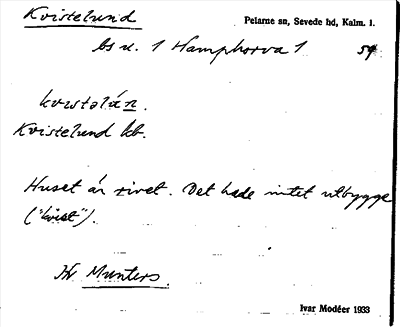 Kvistelund
Pelarne sn, Sevede hd, Kalm. l.
bs u. 1 Hamphorva 1 54
kvɪstəlán.
Kvistelund kb.
Huset är rivet. Det hade intet utbygge
("kvist").
Hr Munters.
Ivar Modéer 1933